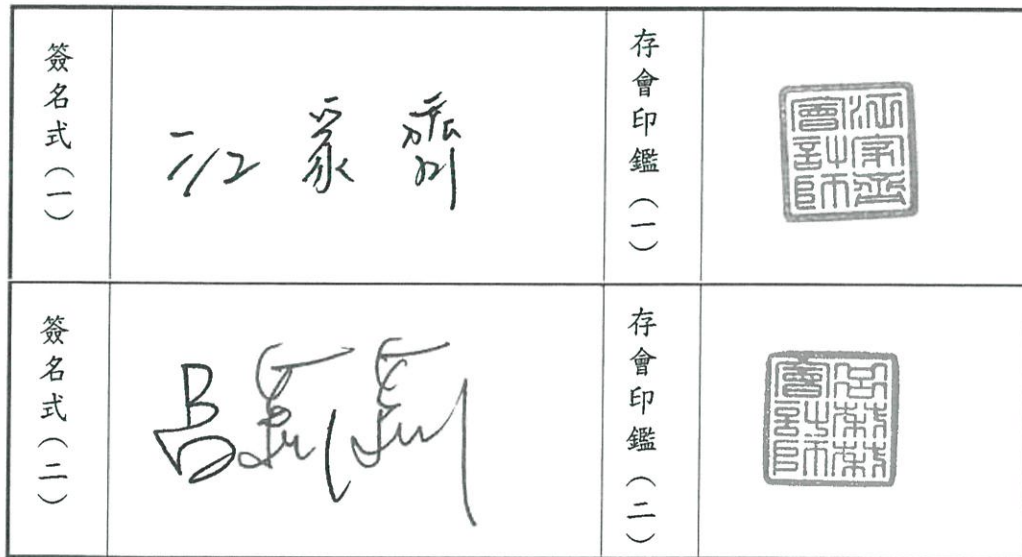 簽名式（一）
江家齊
存會印鑑（一）
江家齊
會計師
簽名式（二）
呂莉莉
存會印鑑（二）
呂莉莉
會計師